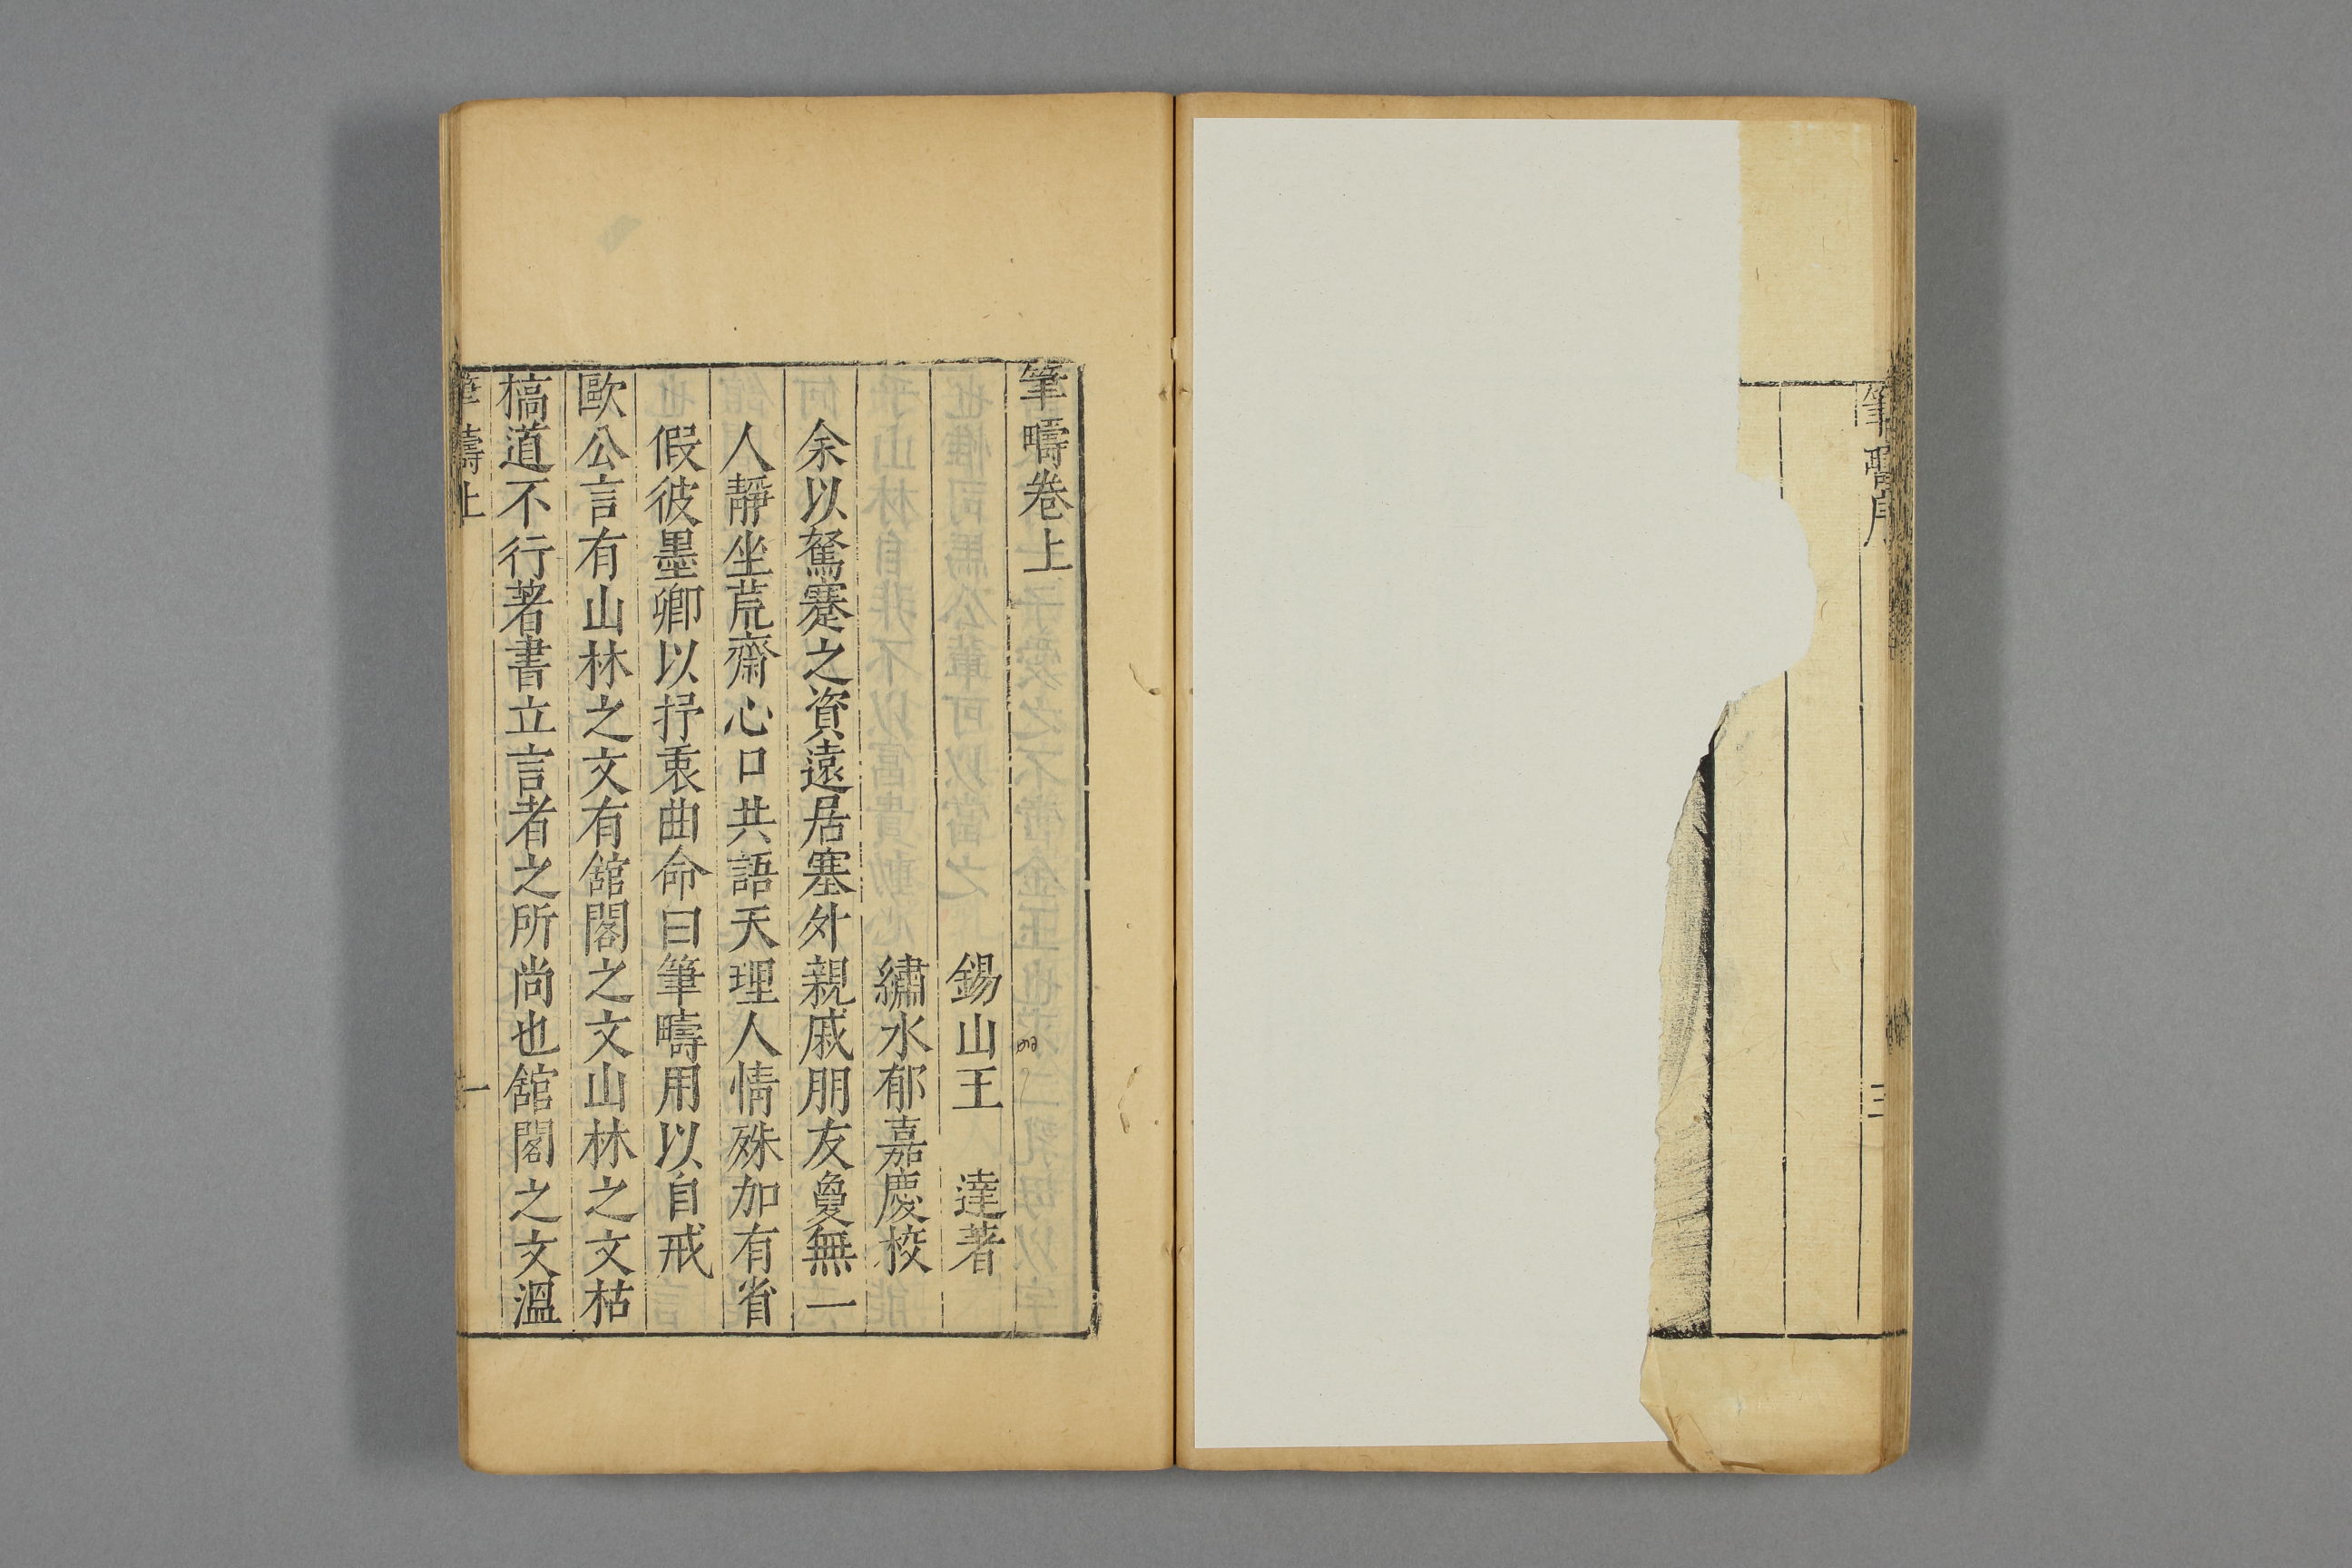 筆疇序
三
筆疇卷上
錫山王　達著
繡水郁嘉慶校
余以駑蹇之資遠居塞外親戚朋友敻無一
人靜坐荒齋心口共語天理人情殊加有省
假彼墨卿以抒衷曲命曰筆疇用以自戒
歐公言有山林之文有舘閣之文山林之文枯
槁道不行著書立言者之所尚也舘閣之文溫
筆疇上
一